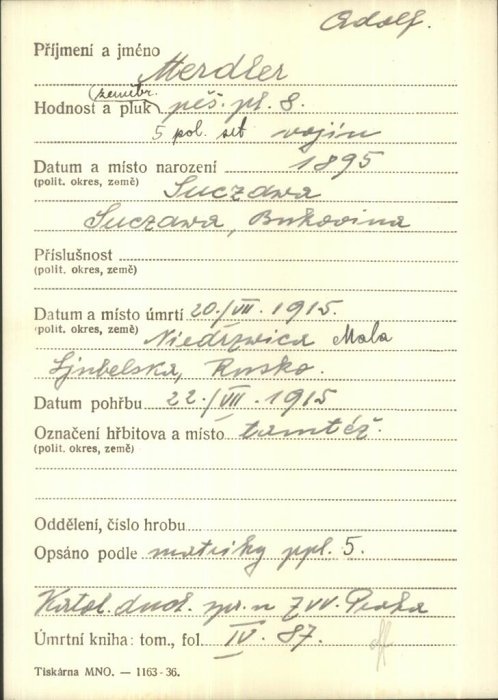 Adolf.
Příjmení a jméno Merdler
(zeměbr.)
Hodnost a pluk pěš. pl. 8.
5 pol. set vojín
Datum a místo narození 1895
(polit. okres, země) Suczawa
Suczawa, Bukovina
Příslušnost
(polit. okres, země)
Datum a místo úmrtí 20./VII. 1915.
(polit. okres, země) Niedrzwica Mala
Ljubelska, Rusko.
Datum pohřbu 22./VII. 1915
Označení hřbitova a místo tamtéž.
(polit. okres, země)
Oddělení, číslo hrobu
Opsáno podle matriky ppl. 5.
Katol. duch. spr. u ZVV. Praha
Úmrtní kniha: tom., fol. IV. 87.
Tiskárna MNO. — 1163-36.